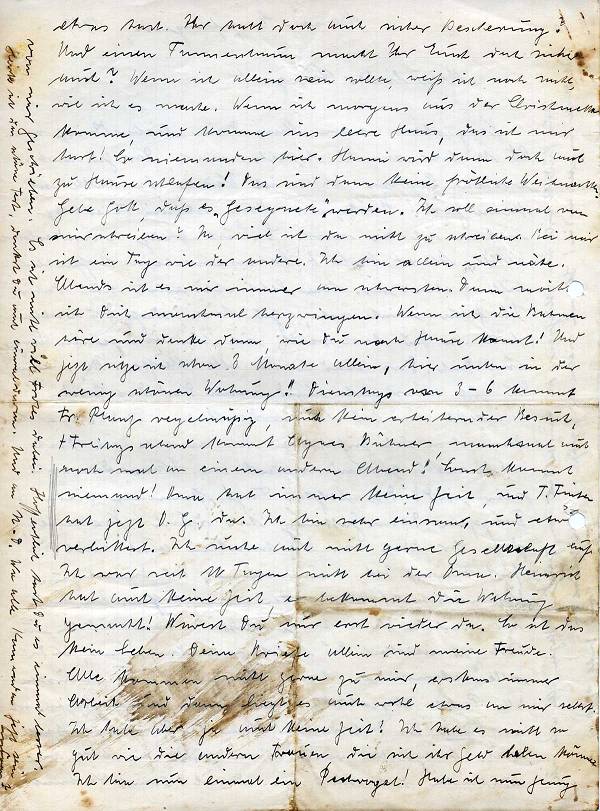 etwas hast. Ihr habt doch auch sicher Bescherung.
Und einen Tannenbaum macht Ihr Euch doch sicher
auch? Wenn ich allein sein sollte, weiß ich noch nicht,
wie ich es mache. Wenn ich morgens aus der Christmette
komme, und komme ins leere Haus, das ist mir
hart! So niemanden hier. Hanni wird dann doch auch
zu Hause schlafen! Das sind dann keine fröhliche Weihnachten.
Gebe Gott, daß es „Gesegnete" werden. Ich soll einmal von
mir schreiben? Ja, viel ist da nicht zu schreiben. Bei mir
ist ein Tag wie der andere. Ich bin allein und nähe.
Abends ist es mir immer am schwersten. Dann möcht
ich Dich manchmal herzwingen. Wenn ich die Bahnen
höre und denke dann wie Du nach Hause kamst! Und
jetzt sitze ich schon 8 Monate allein, hier unten in der
wenig schönen Wohnung!! Dienstags von 3 - 6 kommt
Fr. regelmäßig, auch kein erheiternder Besuch,
+ Freitags abend kommt Agnes manchmal auch
noch mal an einem andern Abend! Sonst kommt
niemand! Oma hat immer keine Zeit, und T.
hat jetzt O. G. da. Ich bin sehr einsam, und etwas
verbittert. Ich suche auch nicht gerne Gesellschaft auf.
Ich war seit Tagen nicht bei der Oma. Heinrich
hat auch keine Zeit, er bekommt die Wohnung
gemacht! Wärest Du, mir erst wieder da. Es ist das
kein Leben. Deine Briefe allein sind meine Freude.
Alle kommen nicht gerne zu mir, erstens immer
Arbeit und dann liegt es auch wohl etwas an mir selbst.
Ich habe aber ja auch keine Zeit! Ich habe es nicht so
gut wie die andern Frauen die sich ihr Geld holen können.
Ich bin nun einmal ein Pechvogel! Habe ich nun genug
von mir geschrieben. Es ist nicht viel Frohes dabei. Hoffentlich hast Du es immer besser.
ich den schönen Fest, denkst Du auch einmal daran. Und an N. D. Wo alle